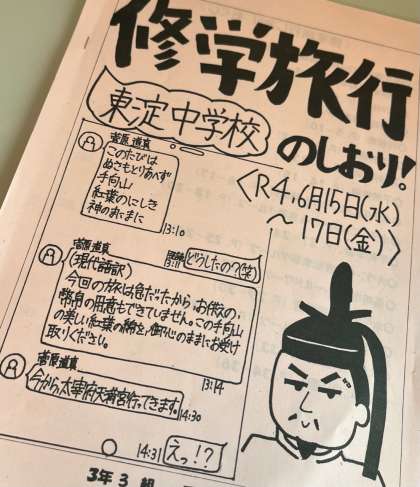 修学旅行
のしおり!
東淀中学校
<R4,6月15日(水)
～17日(金)>
菅原道真
このたびは
ぬさもとりあへず
手向山
紅葉のにしき
神のまにまに
13:10
既読
13:11
どうしたの?(笑)
菅原道真
(現代語訳)
今回の旅は急だったから、お供えの
幣帛の用意もできていません。この手向山
の美しい紅葉の錦を、御心のままにお受け
取りください。
13:14
菅原道真
今から太宰府天満宮行ってきます。
14:30
14:31
えっ!?
3年3組